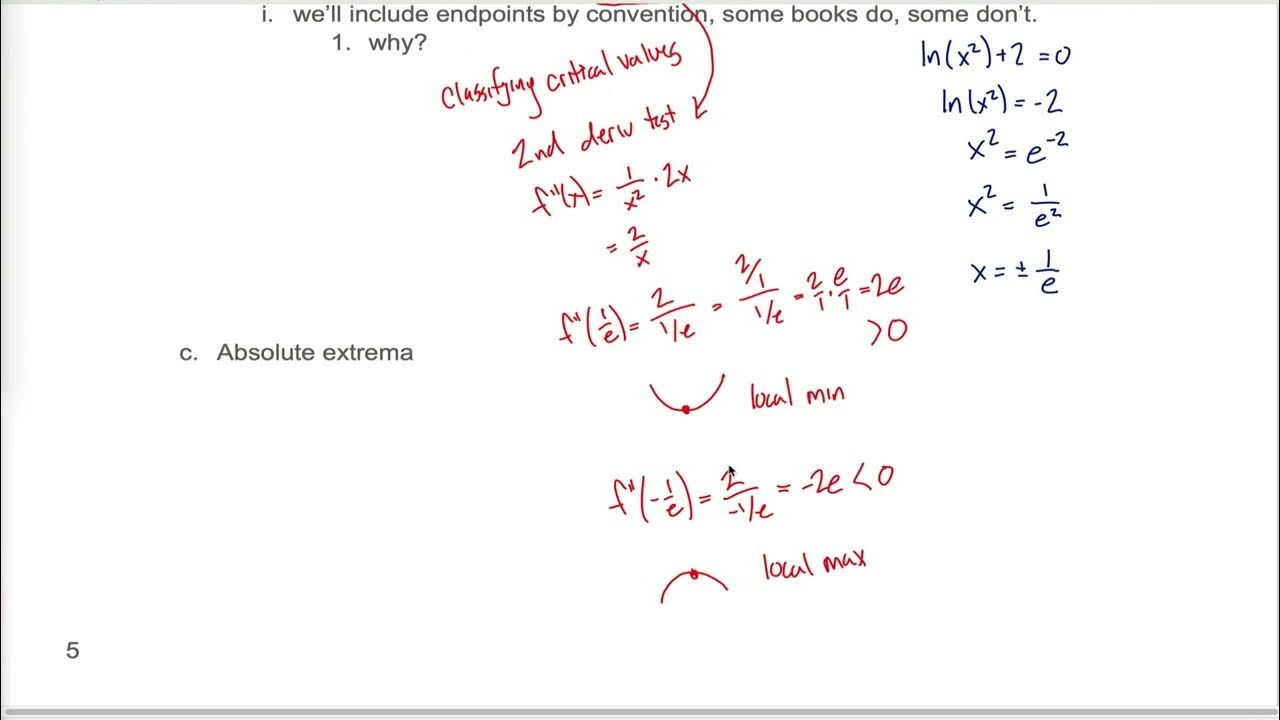 i. we'll include endpoints by convention, some books do, some don't.
1. why?
Classifying critical values
2nd deriv test
f''(x) = 1/x² · 2x
= 2/x
f''(1/e) = 2/(1/e) = (2/1)/(1/e) = 2/1 · e/1 = 2e
>0
local min
f''(-1/e) = 2/(-1/e) = -2e < 0
local max
ln(x²)+2 = 0
ln(x²) = -2
x² = e⁻²
x² = 1/e²
x = ± 1/e
c. Absolute extrema
5